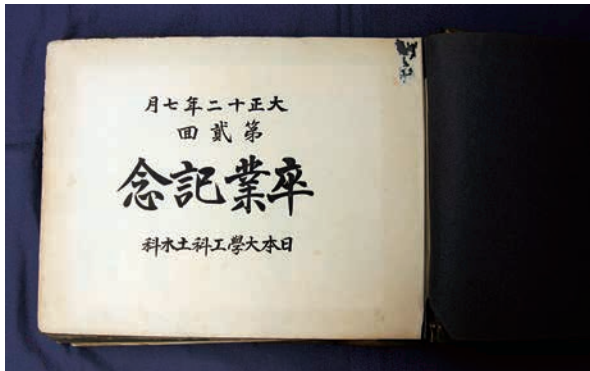 大正十二年七月
第貳回
卒業記念
日本大學工科土木科